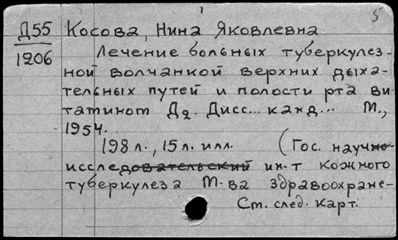 5
Д55 Косова, Нина Яковлевна
1206 Лечение больных туберкулез-
ной волчанкой верхних дыха-
тельных путей и полости рта ви
тамином Д2. Дисс... канд... М.,
1954.
198 л., 15 л. илл. (Гос. научно-
исследовательский ин-т кожного
туберкулеза М-ва здравоохране-
См. след. карт.